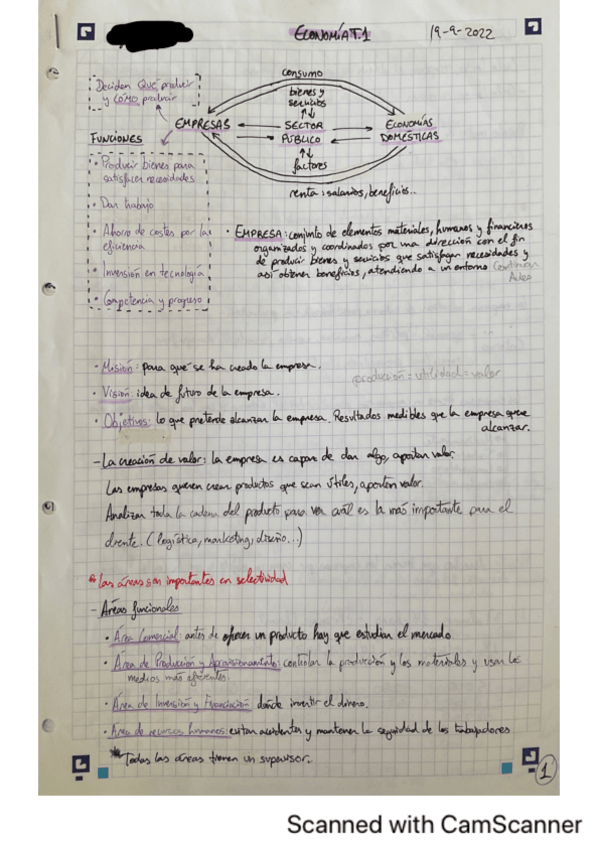 ECONOMÍA T.1
19-9-2022
Deciden QUÉ producir
y CÓMO producir
consumo
bienes y
servicios
EMPRESAS
SECTOR
PÚBLICO
ECONOMÍAS
DOMÉSTICAS
factores
renta: salarios, beneficios..
FUNCIONES
• Producir bienes para
satisfacer necesidades
• Dar trabajo
• Ahorro de costes por la
eficiencia
• Inversión en tecnología
• Competencia y progreso
• EMPRESA: conjunto de elementos materiales, humanos y financieros
organizados y coordinados por una dirección con el fin
de producir bienes y servicios que satisfagan necesidades y
así obtener beneficios, atendiendo a un entorno
• Misión: para qué se ha creado la empresa.
producción = utilidad = valor
• Visión: idea de futuro de la empresa.
• Objetivos: lo que pretende alcanzar la empresa. Resultados medibles que la empresa quiere
alcanzar.
- La creación de valor: la empresa es capaz de dar algo, aportar valor.
Las empresas quieren crear productos que sean útiles, aporten valor.
Analizar toda la cadena del producto para ver cuál es la más importante para el
cliente. (logística, marketing, diseño...)
* Las áreas son importantes en selectividad
- Áreas funcionales
• Área Comercial: antes de ofrecer un producto hay que estudiar el mercado
• Área de Producción y Aprovisionamiento: controlar la producción y los materiales y usar los
medios más eficientes.
• Área de Inversión y Financiación: dónde invertir el dinero.
• Área de recursos humanos: evitan accidentes y mantener la seguridad de los trabajadores
* Todas las áreas tienen un supervisor.
1
Scanned with CamScanner